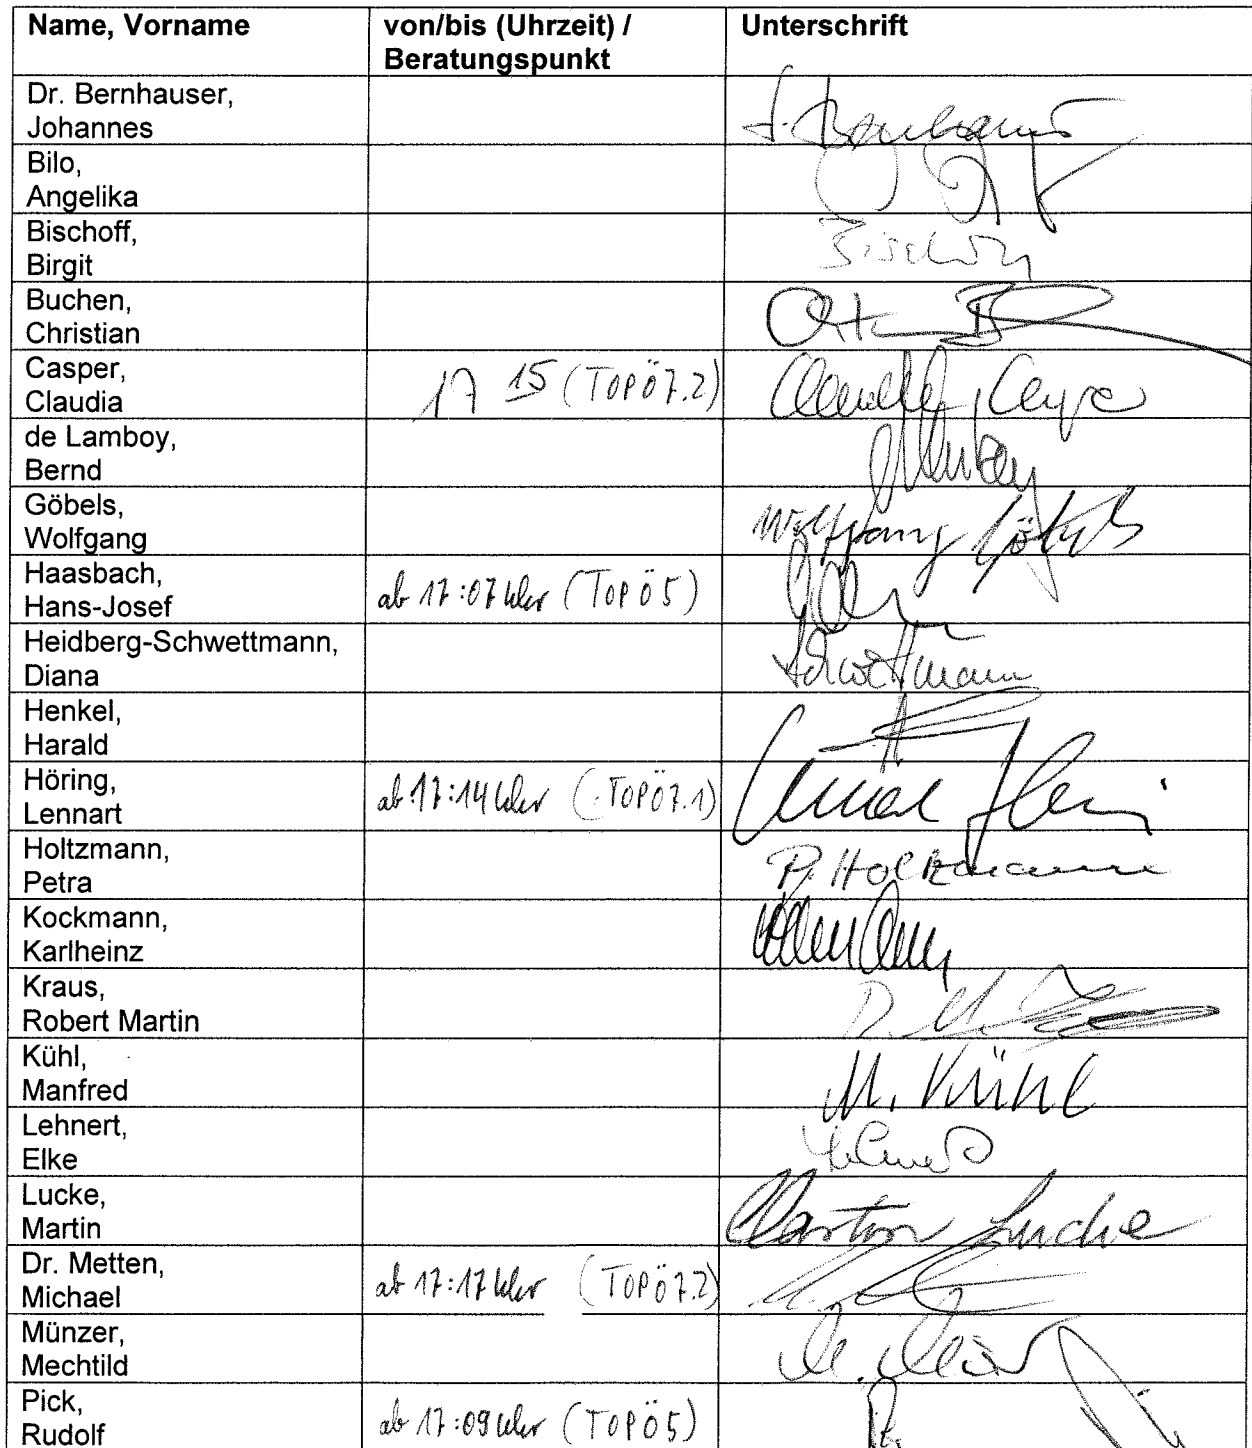 Name, Vorname von/bis (Uhrzeit) / Unterschrift
Beratungspunkt
Dr. Bernhauser,
Johannes J. Bernhauser
Bilo,
Angelika
Bischoff,
Birgit Bischoff
Buchen,
Christian
Casper,
Claudia 17 15 (TOPÖ7.2) Claudia Casper
de Lamboy,
Bernd
Göbels,
Wolfgang Wolfgang Göbels
Haasbach,
Hans-Josef ab 17:07 Uhr (TOP Ö 5)
Heidberg-Schwettmann,
Diana Schwettmann
Henkel,
Harald
Höring,
Lennart ab 17:14 Uhr (TOPÖ7.1)
Holtzmann,
Petra P. Holtzmann
Kockmann,
Karlheinz
Kraus,
Robert Martin
Kühl,
Manfred M. Kühl
Lehnert,
Elke Lehnert
Lucke,
Martin Martin Lucke
Dr. Metten,
Michael ab 17:17 Uhr (TOPÖ7.2)
Münzer,
Mechtild
Pick,
Rudolf ab 17:09 Uhr (TOPÖ5)